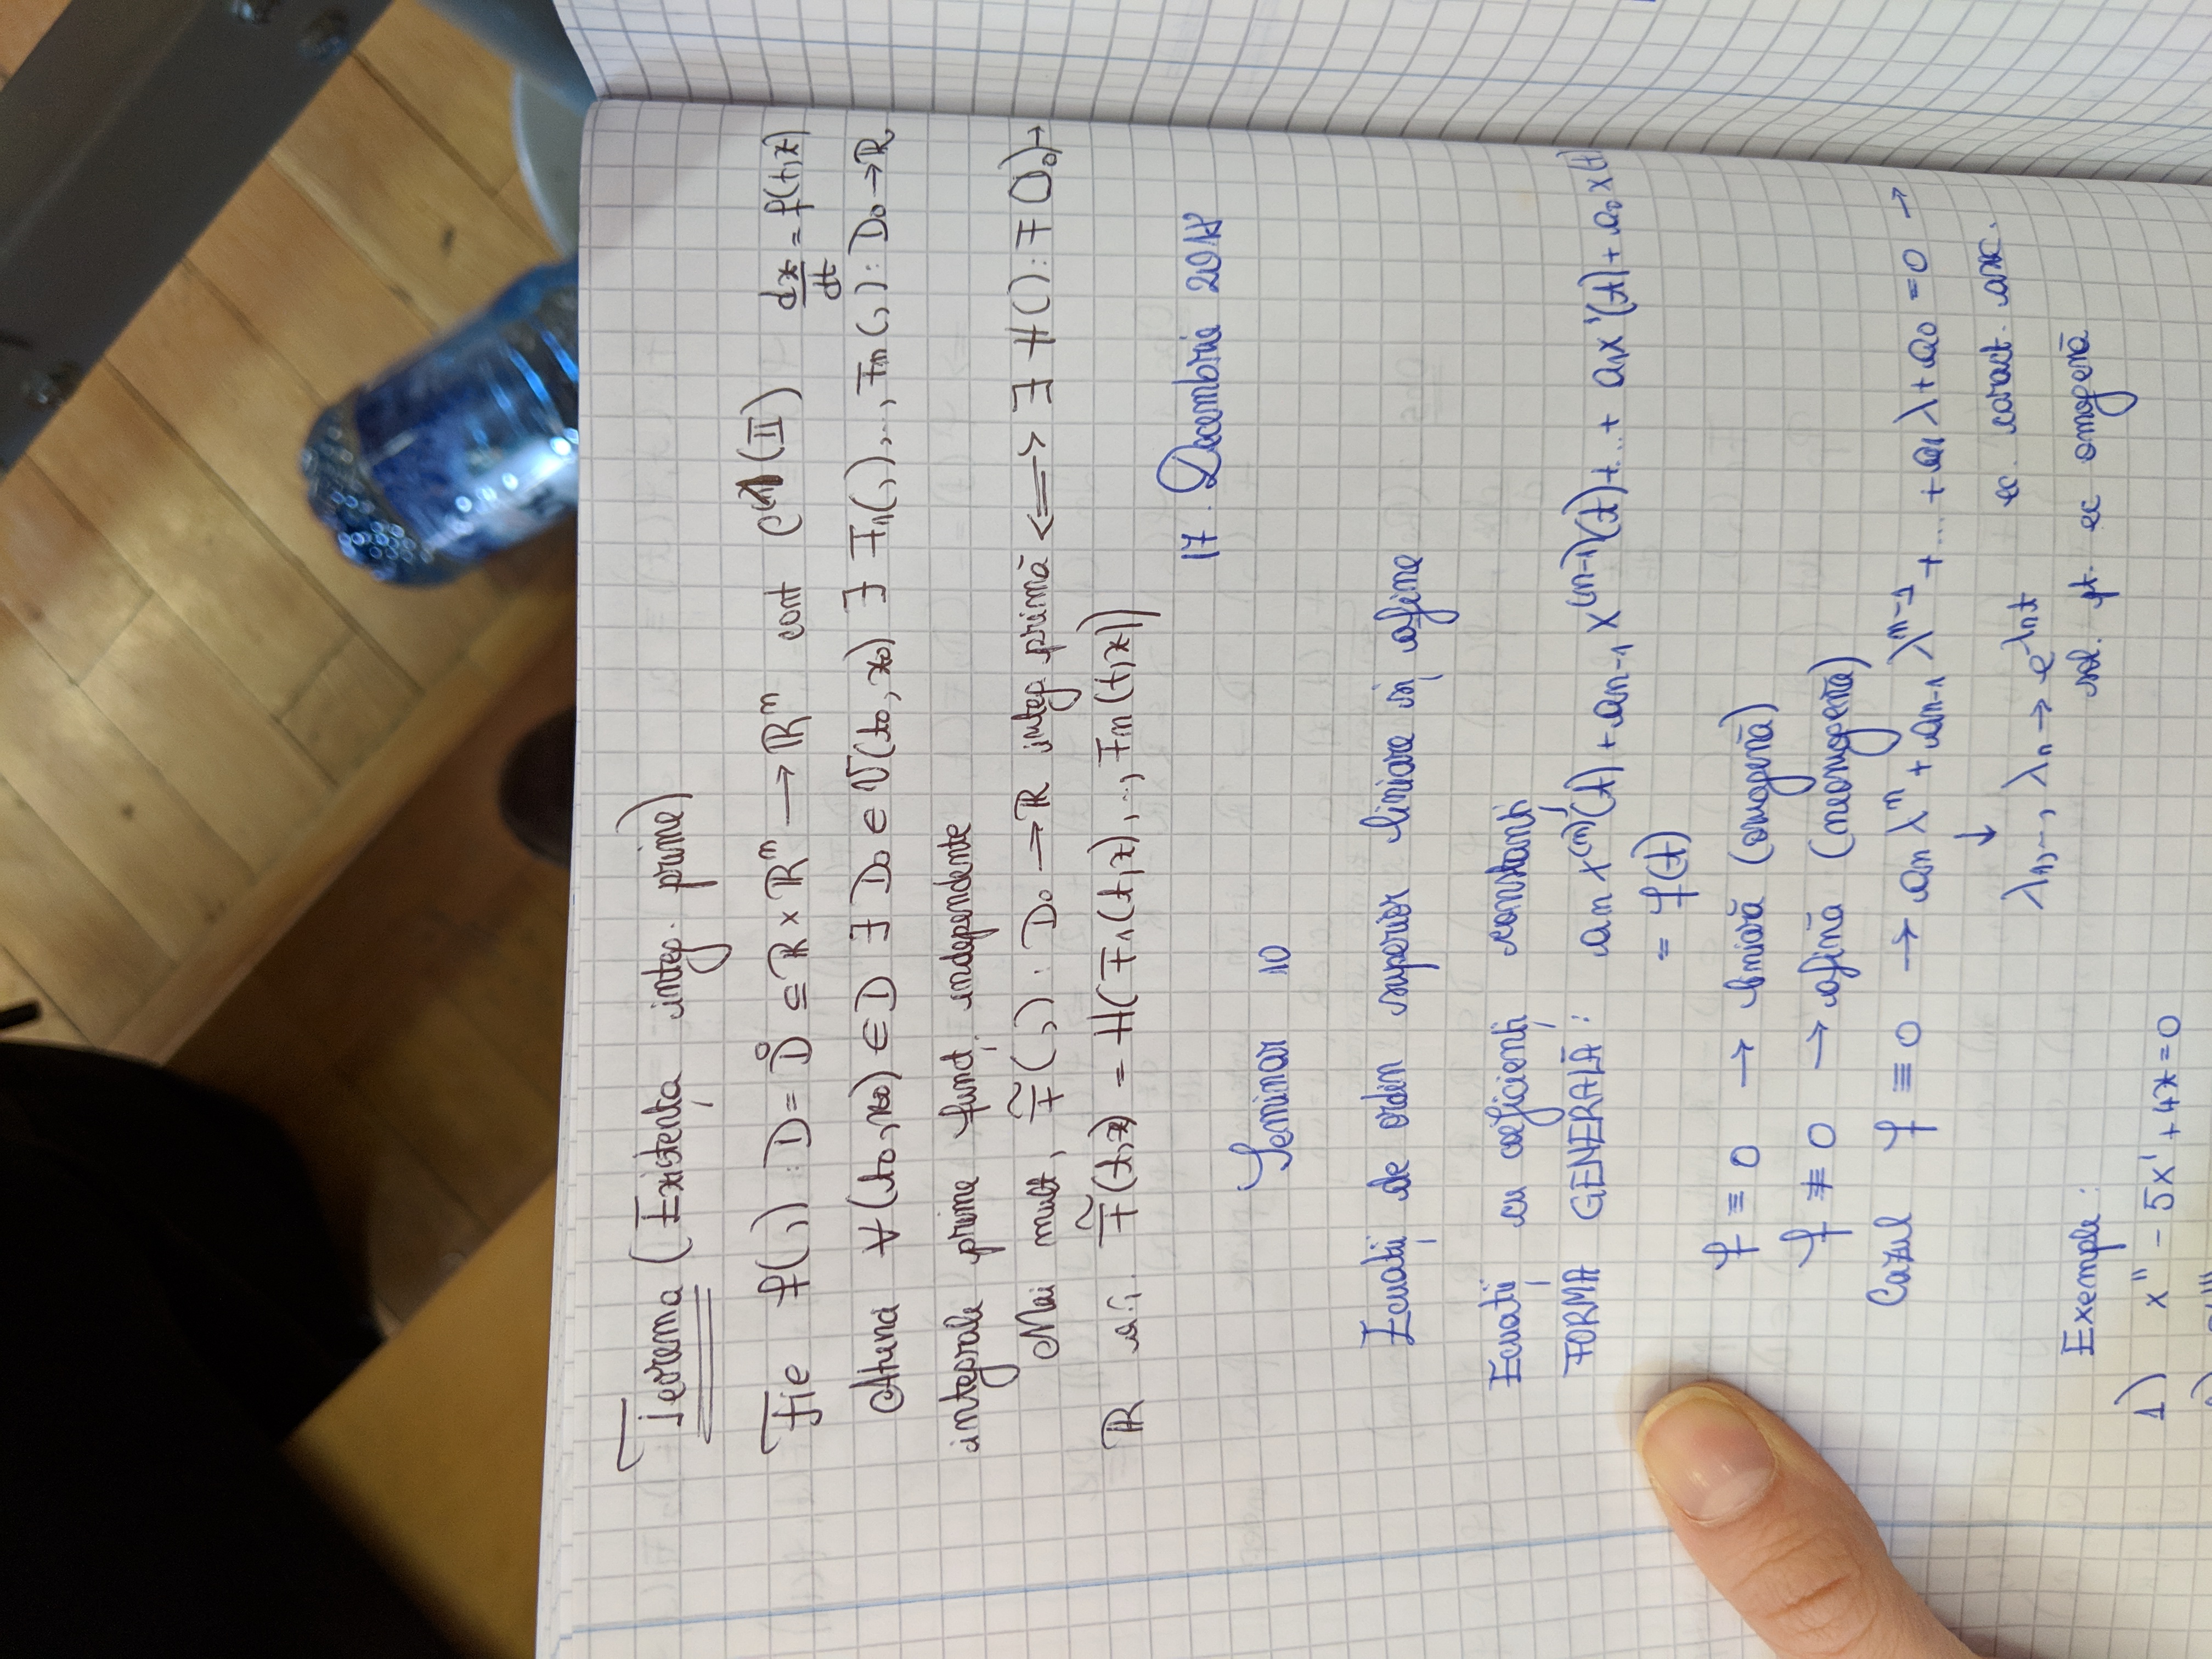 Teorema (Existența integ. prime)
Fie f(,) : D = D̊ ⊆ ℝ × ℝⁿ → ℝⁿ cont (II) dx/dt = f(t,x)
Atunci ∀(t₀,x₀) ∈ D ∃ D₀ ∈ V(t₀,x₀) ∃ F₁(,),.., Fₙ(,) : D₀ → ℝ
integrale prime funcț. independente
Mai mult, F̃(,) : D₀ → ℝ integ. primă ⟺ ∃ H() : F(D₀) →
ℝ a.î. F̃(t,x) = H(F₁(t,x),.., Fₙ(t,x))
17. Decembrie 2018
Seminar 10
Ecuații de ordin superior liniare și afine
Ecuații cu coeficienți constanți
FORMA GENERALĂ : aₙ x⁽ⁿ⁾(t) + aₙ₋₁ x⁽ⁿ⁻¹⁾(t) + ... + a₁x'(t) + a₀ x(t)
= f(t)
f ≡ 0 → liniară (omogenă)
f ≢ 0 → afină (neomogenă)
Cazul f ≡ 0 → aₙ λⁿ + aₙ₋₁ λⁿ⁻¹ + ... + a₁ λ + a₀ = 0 →
↓ ec. caract. asc.
λ₁,.., λₙ → e^λₙt
Exemple : sol. pt. ec omogenă
1) x'' - 5x' + 4x = 0